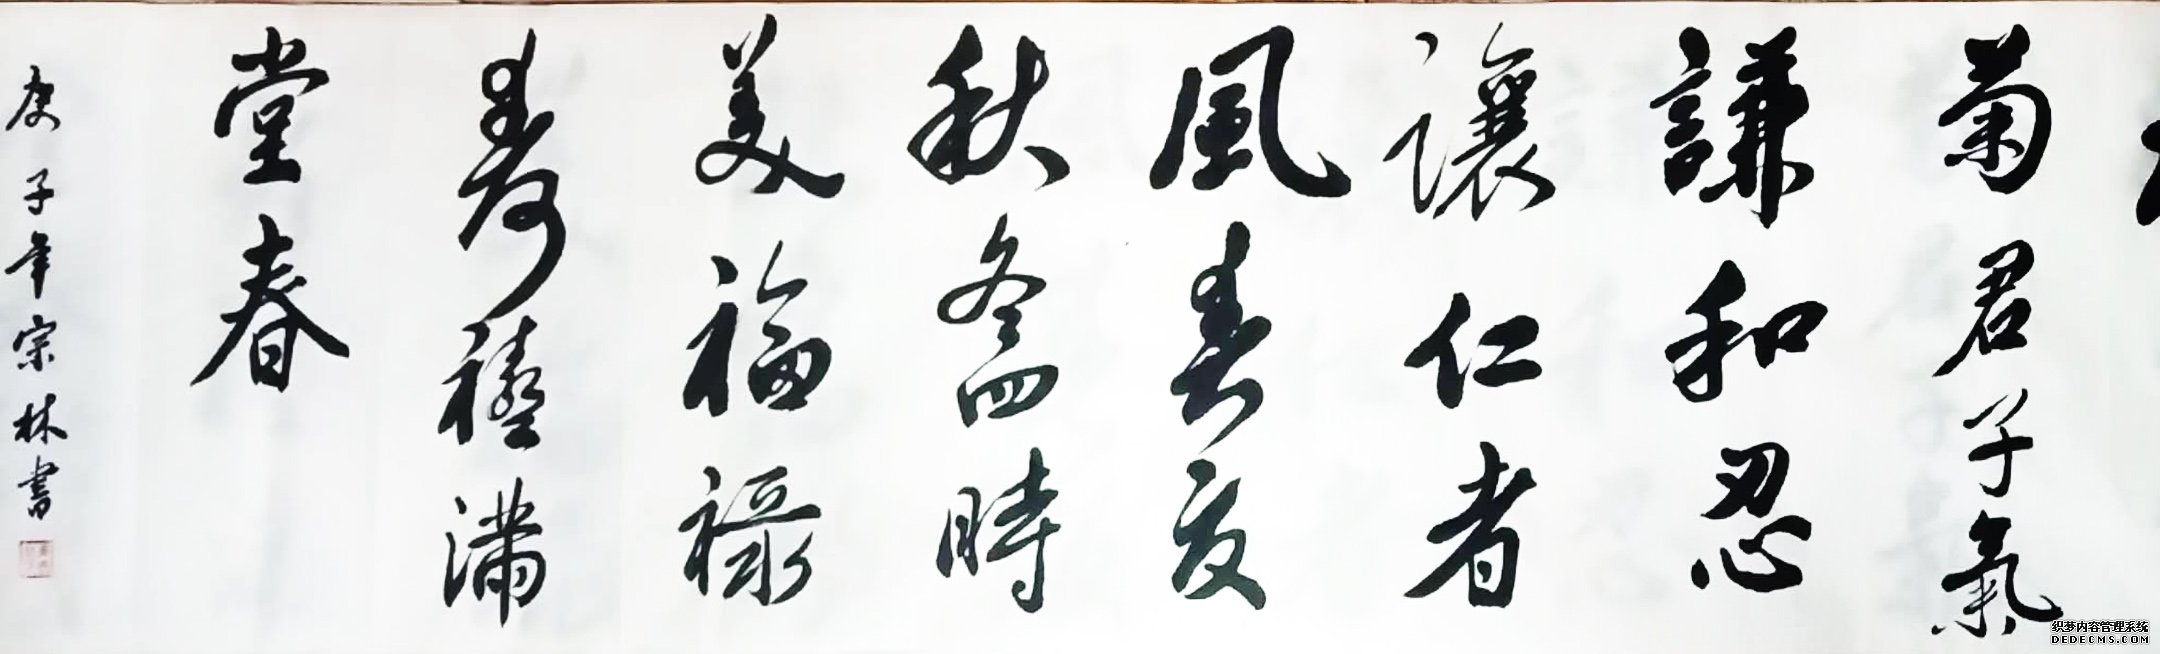 菊君子氣
謙和忍
讓仁者
風春夏
秋冬四時
美福祿
壽禧滿
堂春
庚子年宗林書
织梦内容管理系统
DEDECMS.COM